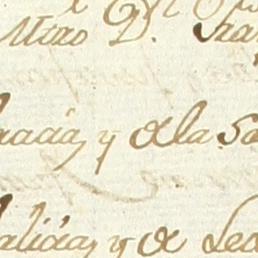 Mtro D.
racia, y de la Sa
alicia, y de Leo